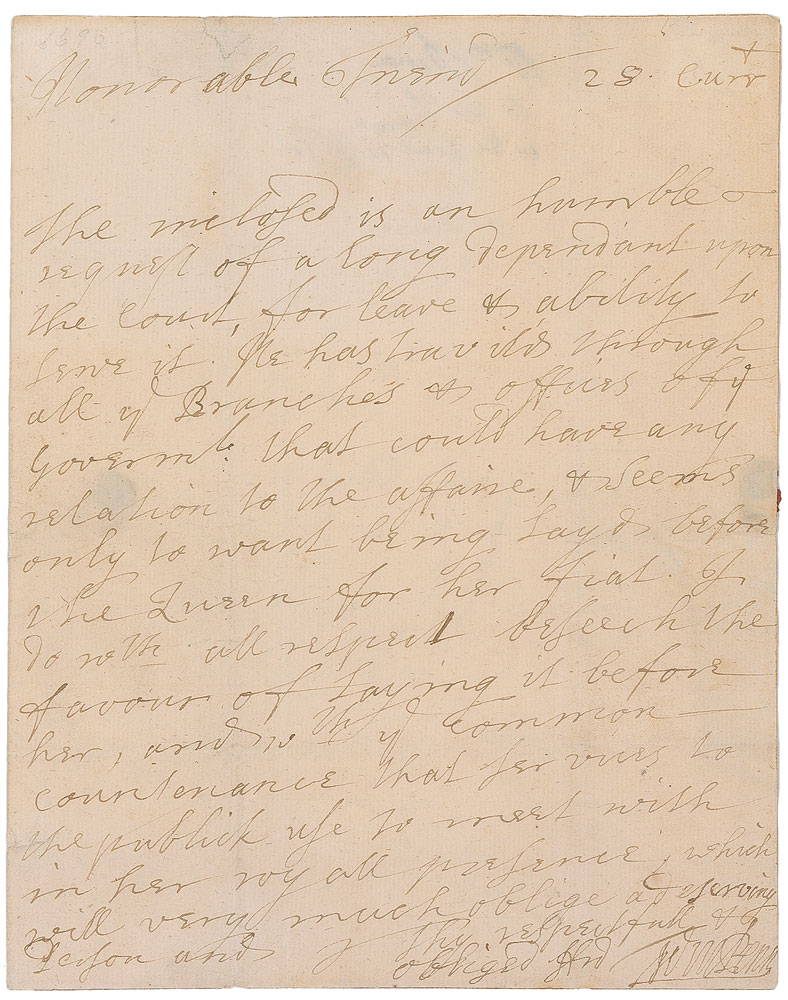 1690
Honorable Friend 28. Curr^t
The inclosed is an humble
request of a long dependant upon
the court, for leave & ability to
serve it. He has travil'd through
all y^e Branches & offices of y^e
Governm^t. that could have any
relation to the affaire, & seems
only to want being layd before
the Queen for her fiat. I
do w^th all respect beseech the
favour of laying it before
her, and w^th y^e common
countenance that services to
the publick use to meet with
in her royall presence, which
will very much oblige a deserving
Person and Thy respectfull &
obliged ffrd Wm Penn